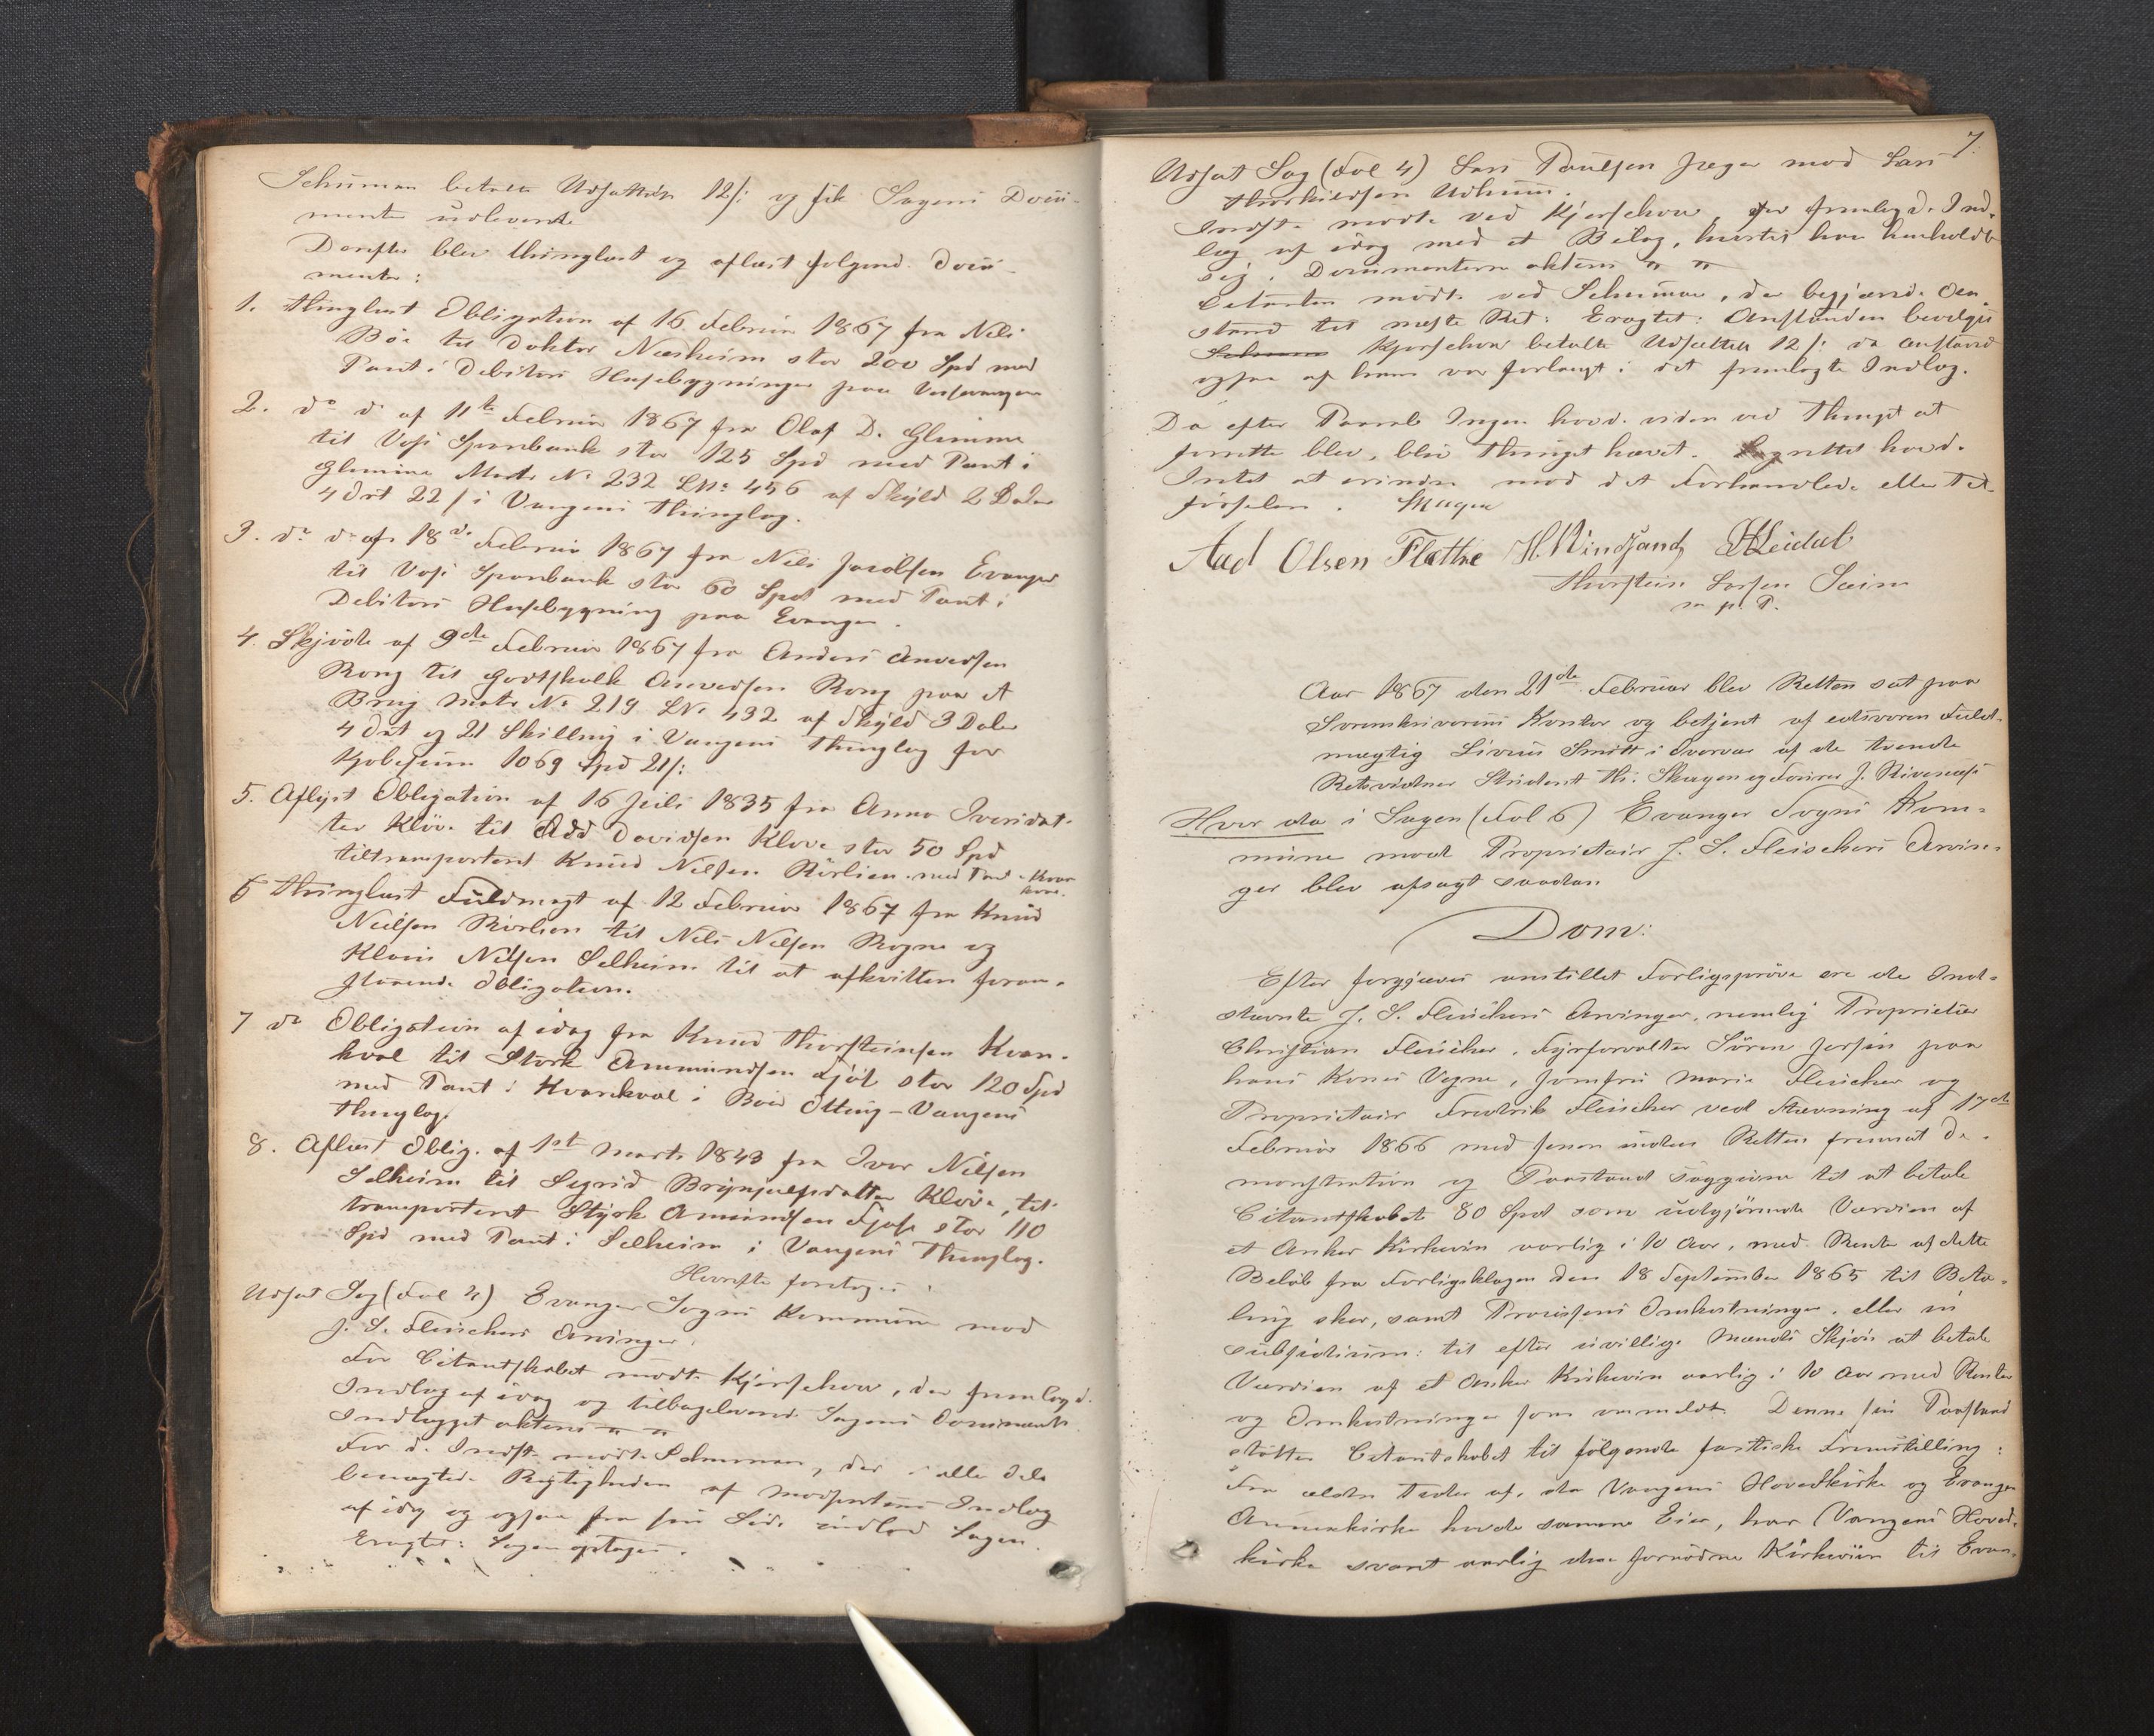 Schuman betalte Udsættelse 12 /: og fik Sagens Docu-
menter udleverede
Derefter blev thinglæst og aflæst følgende Docu-
menter:
1. Thinglæst Obligation af 16 Februar 1867 fra Nils
Bøe til Doktor Næsheim stor 200 Spd med
Pant i Debitors Husebygninger paa Vossevangen
2. do do af 11te Februar 1867 fra Olaf D. Glimme
til Voss Sparebank stor 125 Spd med Pant i
Glimme Matr No 232 LNo 456 af Skyld 2 Daler
4 Ort 22 / i Vangens Thinglag.
3. do do af 18de Februar 1867 fra Nils Jacobsen Evanger
til Voss Sparebank stor 60 Spd med Pant i
Debitors Husebygning paa Evanger.
4. Skjøde af 9de Februar 1867 fra Anders Andersen
Rong til Godtskalk Andersen Rong paa et
Brug Matr No 219 LNo 432 af Skyld 3 Daler
4 Ort og 21 Skilling i Vangens Thinglag for
Kjøbesum 1069 Spd 21 /:
5. Aflyst Obligation af 16 Juli 1835 fra Anna Iversdat-
ter Kløve til Odd Davidsen Kløve stor 50 Spd
tiltransporteret Knud Nilsen Rørlien med Pant i
6 Thinglæst Fuldmagt af 12 Februar 1867 fra Knud
Nielsen Rørlien til Nils Nilsen Rogne og
Nilsen Selheim til at afkvittere foran-
staaende Obligation.
7 do Obligation af idag fra Knud Thorsteinsen Kvar-
hval til Størk Ammundsen Fjøse stor 120 Spd
med Pant i Kvarekval i Bøes Otting - Vangens
Thinglag.
8. Aflæst Oblig. af 1st Marts 1843 fra Iver Nilsen
Selheim til Sigrid Brynjulfsdatter Kløve, til-
transporteret Styrk Amundsen Fjøse stor 110
Spd med Pant i Selheim i Vangens Thinglag.
Herefter foretoges:
Udsat Sag (Fol 4) Evanger Sogns Kommune mod
J. S. Fleischers Arvinger.
For Citantskabet mødte Kjerschow, der fremlagde
Indlæg af idag og tilbageleverede Sagens Documenter
Indlægget akteres " "
For d. Indst. mødte Schuman, der i alle Dele
benægtede Rigtigheden af Modpartens Indlæg
af idag og ogsaa fra sin Side indlod Sagen.
Eragtet: Sagen optages.
7.
Udsat Sag (Fol 4) Lars Paulsen Jæger mod Lars
Thorkildsen Udhuus.
Indst. mødte ved Kjerschow, der fremlagde Ind-
læg af idag med et Bilag, hvortil han henholdt
sig. Documenterne akteres " "
Citanten mødte ved Schuman, der begjærede An-
stand til næste Ret: Eragtet: Anstanden bevilges
Kjerschow betalte Udsættelse 12 /: da Anstand
ogsaa af ham var forlangt i det fremlagte Indlæg.
Da efter Paaraab Ingen havde videre ved Thinget at
forrette blev, blev Thinget hævet. Lagrettet havde
Intet at erindre mod det Forhandlede eller Til-
førselen. Skagen
Aad Olsen Fløthe H. Windsand HLeidal
Thorstein Larsen Sæim
m. p. P.
Aar 1867 den 21de Februar blev Retten sat paa
Sorenskriverens Kontor og betjent af edsvoren Fuld-
mægtig Livius Smitt i Overvær af de tvende
Retsvidner Student Th: Skagen og Fourer J.
Hvor da i Sagen (Fol 6) Evanger Sogns Kom-
mune mod Proprietair J. S. Fleischers Arvin-
ger blev afsagt saadan
Dom:
Efter forgjæves anstillet Forligsprøve ere de Ind-
stævnte J. S. Fleischers Arvinger, nemlig Proprietær
Christian Fleischer, Fyrforvalter Sören Jersin paa
hans Kones Vegne, Jomfru Marie Fleischer og
Proprietair Fredrik Fleischer ved Stævning af 17de
Februar 1866 med senere inden Retten fremsat De-
monstration og Paastand søgte til at betale
Citantskabet 80 Spd som udgjørende Værdien af
et Anker Kirkeviin aarlig i 10 Aar, med Rente af dette
Beløb fra Forligsklagen den 18 September 1865 til Beta-
ling sker, samt Processens Omkostninger, eller in
subsidium: til efter uvillige Mænds Skjøn at betale
Værdien af et Anker Kirkeviin aarlig i 10 Aar med Renter
og Omkostninger som anmeldt. Denne sin Paastand
støtter Citantskabet til følgende factiske Fremstilling:
Fra ældre Tider af, da Vangens Hovedkirke og Evanger
Annexkirke havde samme Eier, har Vangens Hoved-
kirke svaret aarlig den fornødne Kirkeviin til Evan-